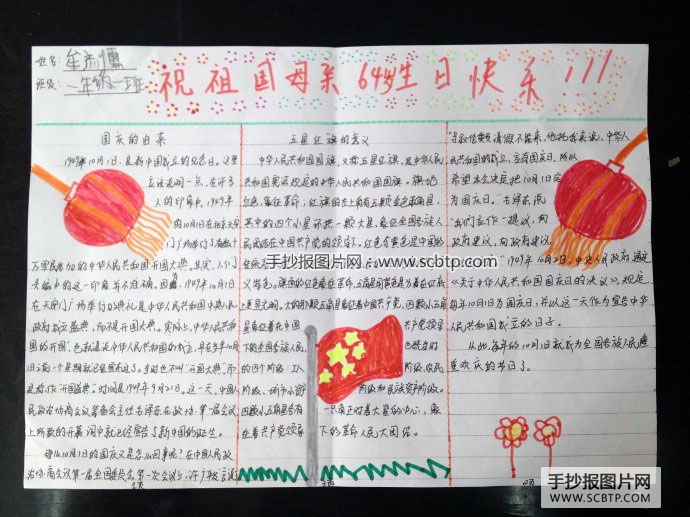 姓名:
班级: 一年级一班
祝祖国母亲64岁生日快乐!!!
国庆的由来
1949年10月1日,是新中国成立的纪念日。这里
应该说明一点,在许多
人的印象中,1949年
的10月1日在北京天安
门广场举行了有数十
万军民参加的中华人民共和国开国大典。其实,人们
头脑中的这一印象并不准确。因为,1949年10月1日
在天安门广场举行的典礼是中华人民共和国中央人民
政府成立盛典,而不是开国大典。实际上,中华人民共和
国的开国,也就是说中华人民共和国的成立,早在当年10月
1日之前一个星期就已经宣布过了。当时也不叫“开国大典”,而
是称作“开国盛典”。时间是1949年9月21日。这一天,中国人
民政治协商会议筹备会主任毛泽东在政协第一届会议
上所致的开幕词中就已经宣告了新中国的诞生。
那么10月1日的国庆又是怎么回事呢?在中国人民政
治协商会议第一届全国委员会第一次会议上,许广平发言说
五星红旗的意义
中华人民共和国国旗,又称五星红旗,是中华人民
共和国宪法规定的中华人民共和国国旗,旗场
红色,象征革命;红旗的左上角有五颗金色五角星,
其中的四个小星环拱一颗大星,象征全国各族人
民团结在中国共产党的领导下。红色
下的全国各族人民
的四个阶级:工人
阶级、城市小资
阶级和民族资产阶级。
四颗小五角星各有
一尖正对着大星的中心,象
征着共产党领导
下的革命人民大团结。
马叙伦委员请假不能来,他托我来说,中华人
民共和国的成立,应有国庆日,所以
希望本会决定把10月1日定
为国庆日。”毛泽东说:
“我们应作一提议,向
政府建议,由政府
”1949年10月2日,中央人民政府通过
《关于中华人民共和国国庆日的决议》,规定
每年10月1日为国庆日,并以这一天作为宣告中华
人民共和国成立的日子。
从此,每年的10月1日就成为全国各族人民隆
重欢庆的节日了。
手抄报图片网
www.scbtp.com
手抄报图片网
WWW.SCBTP.COM